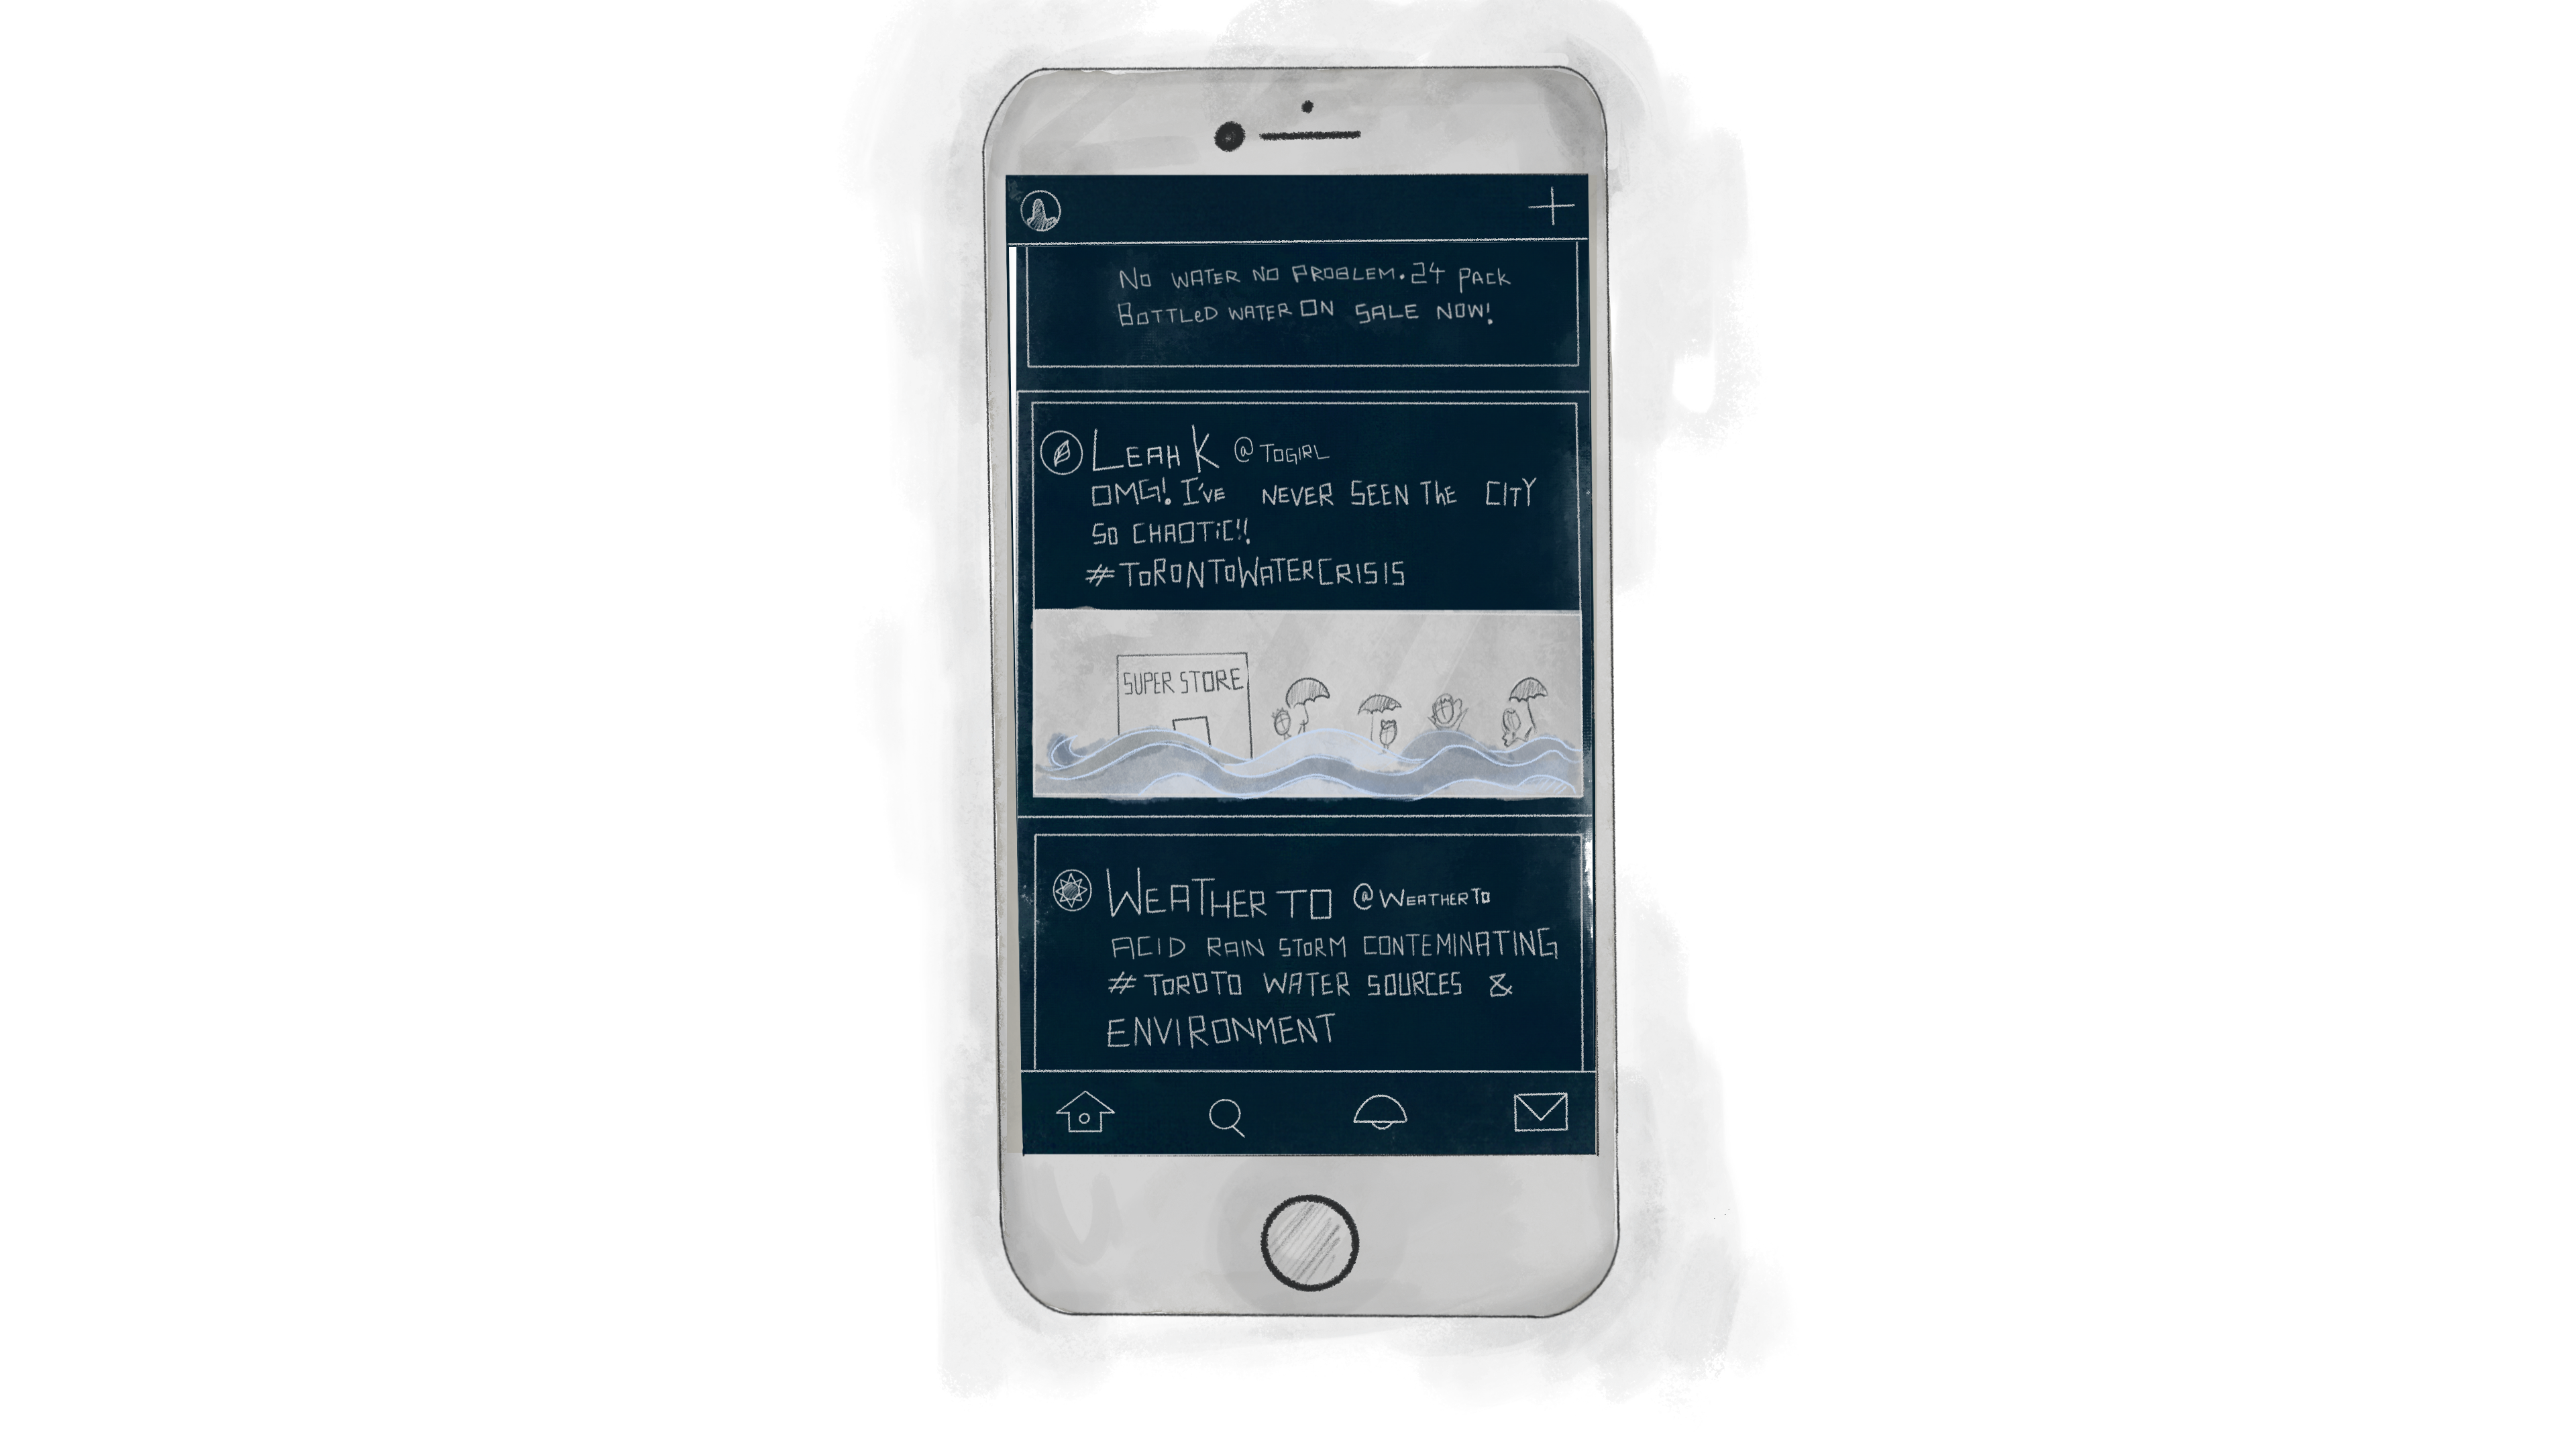 No WATER NO PROBLEM. 24 PACK
BOTTLeD WATER ON SALE NOW!
LEAH K @TOGIRL
OMG! I'VE NEVER SEEN The CITY
SO CHAOTiC!!
#ToRONTOWATERCRISIS
SUPER STORE
WEATHER TO @WEATHERTO
ACID RAIN STORM CONTEMINATING
#TOROTO WATER SOURCES &
ENVIRONMENT